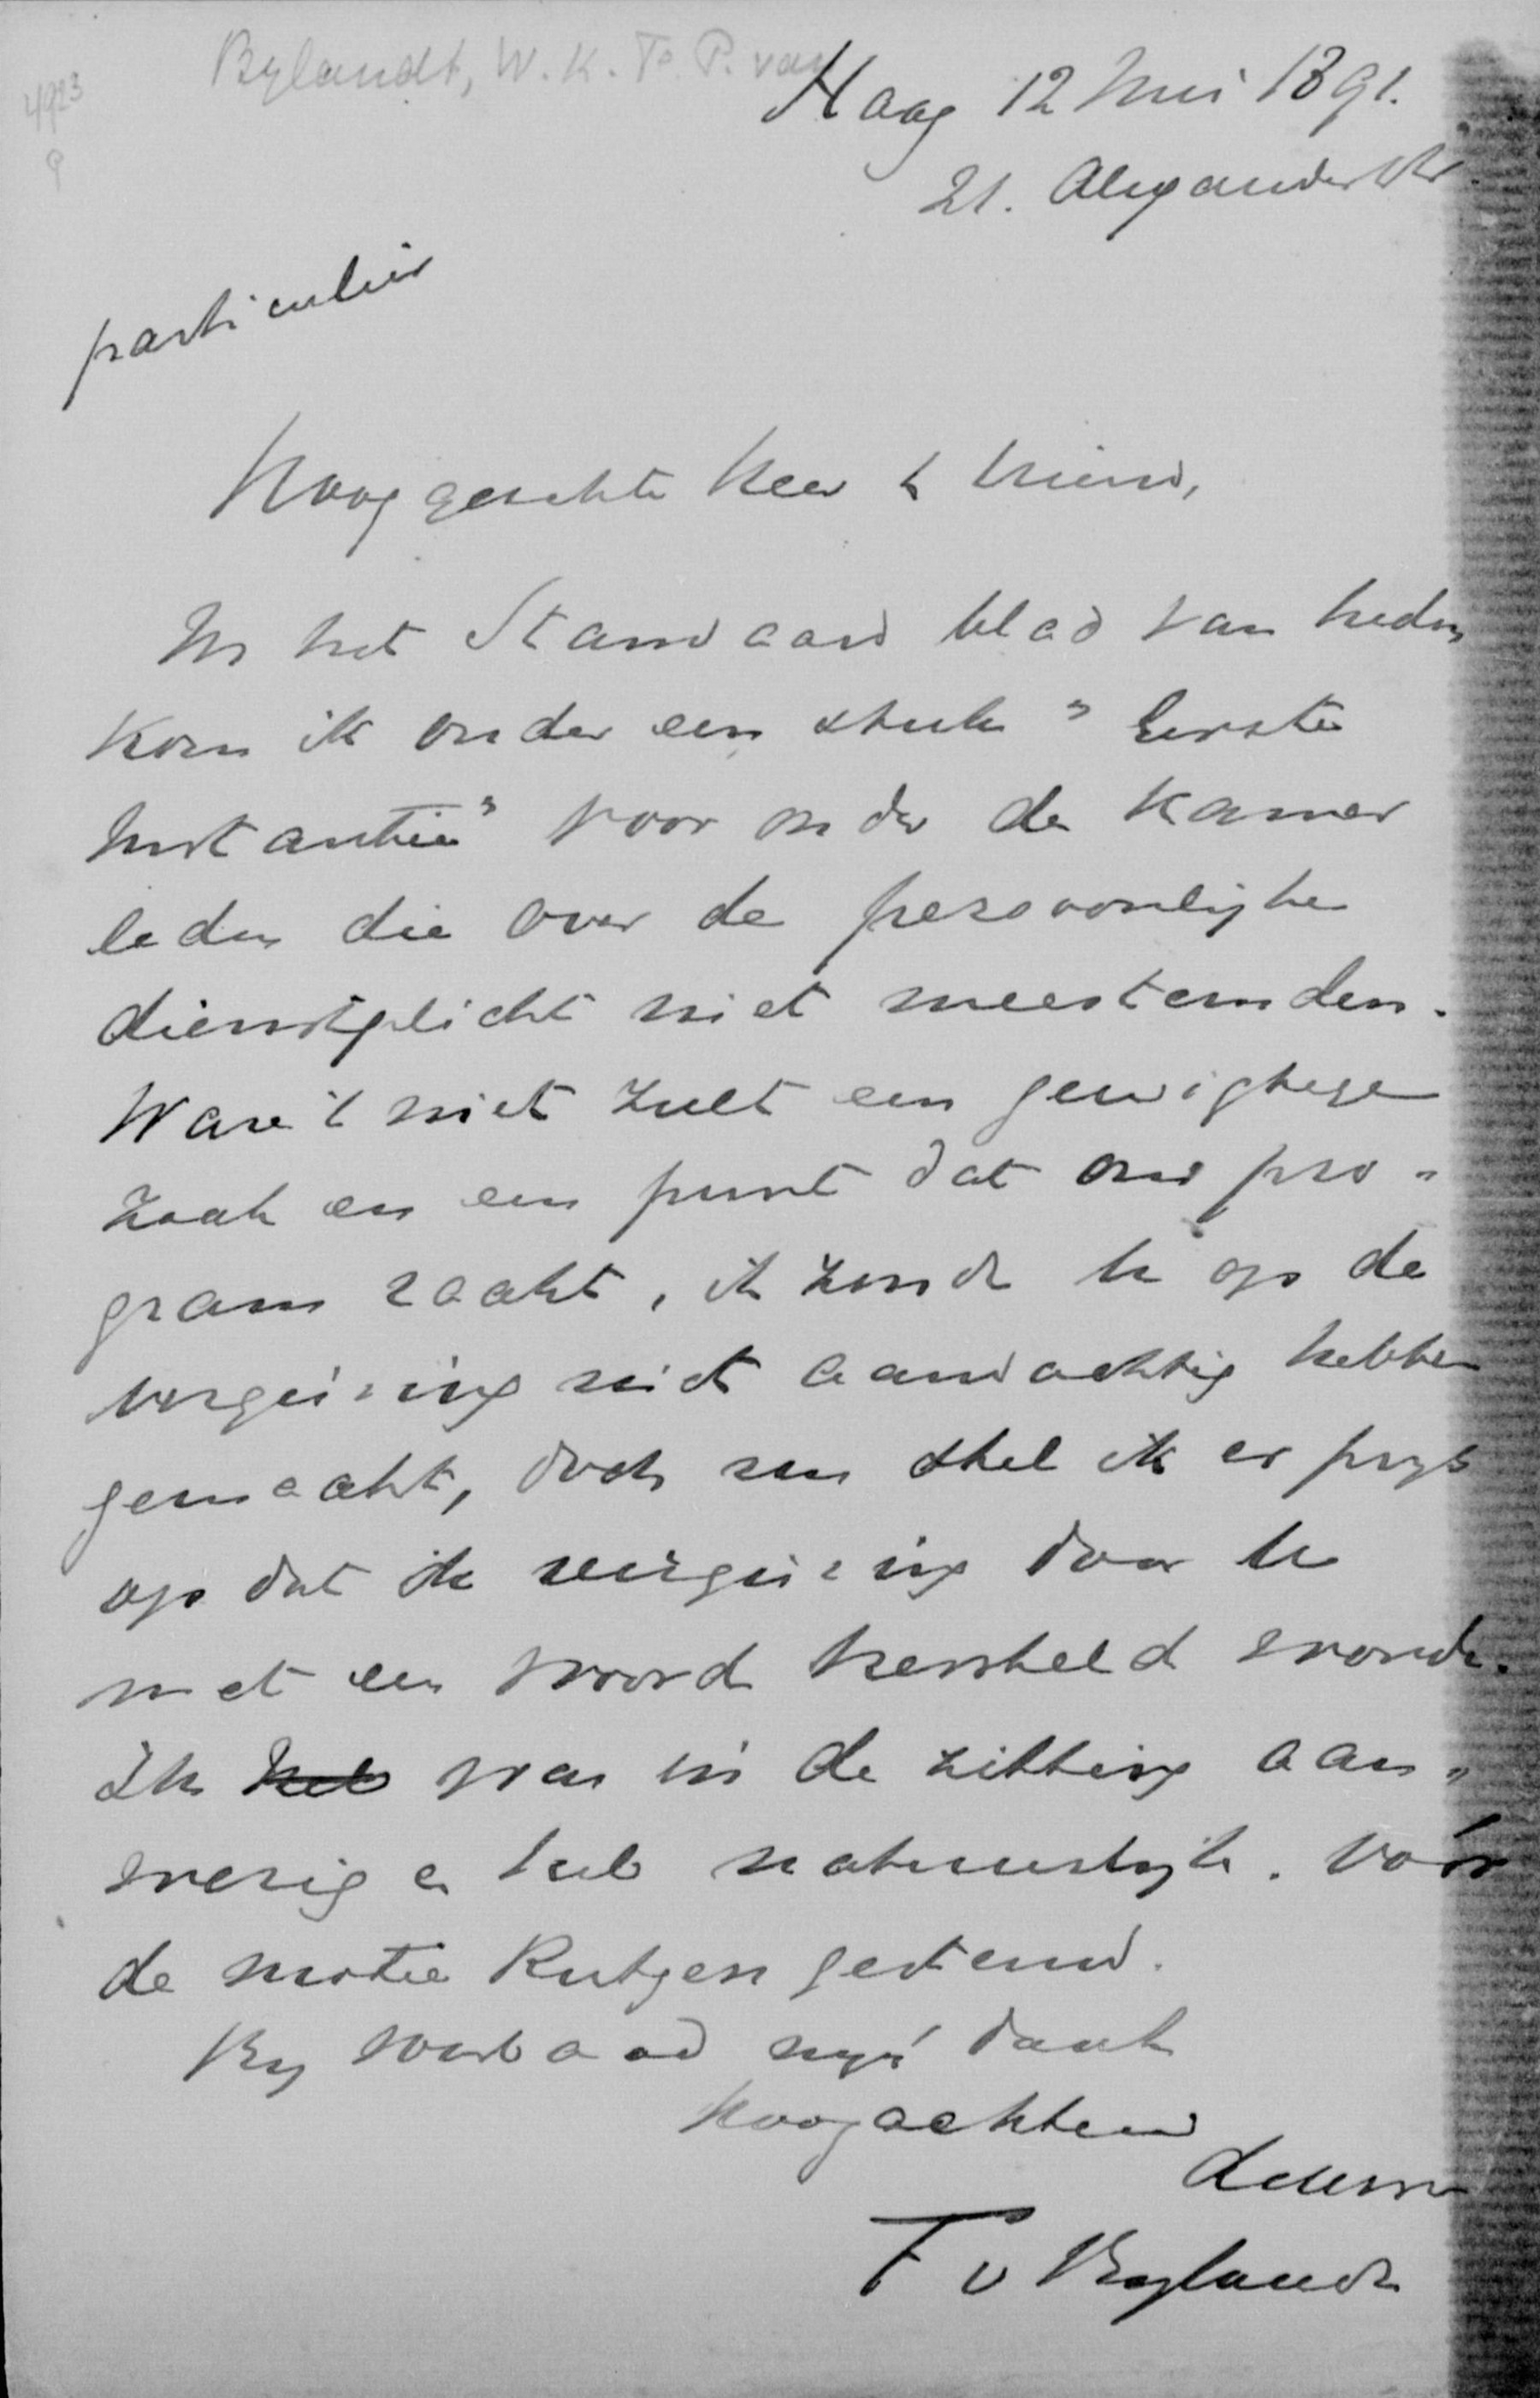 Bylandt, W.K.F.P. van
4923
9
Haag 12 Mei 1891.
21. Alexanderstr.
particulier
Hooggeachte Heer & Vriend,
In het Standaard blad van heden
kom ik onder een stuk "Eerste
Instantie" voor onder de Kamer
leden die over de persoonlijke
dienstplicht niet meestemden.
Ware 't niet zulk een gewigtige
zaak en een punt dat ons pro-
gram raakt, ik zoude U op de
vergissing niet aandachtig hebben
gemaakt, doch nu stel ik er prijs
op dat de vergissing door U
met een woord hersteld worde.
Ik heb was in de zitting aan-
wezig en heb natuurlijk. vóór
de motie Rutgers gestemd.
Bij voorbaad mijn dank
Hoogachtend
F v Bylandt